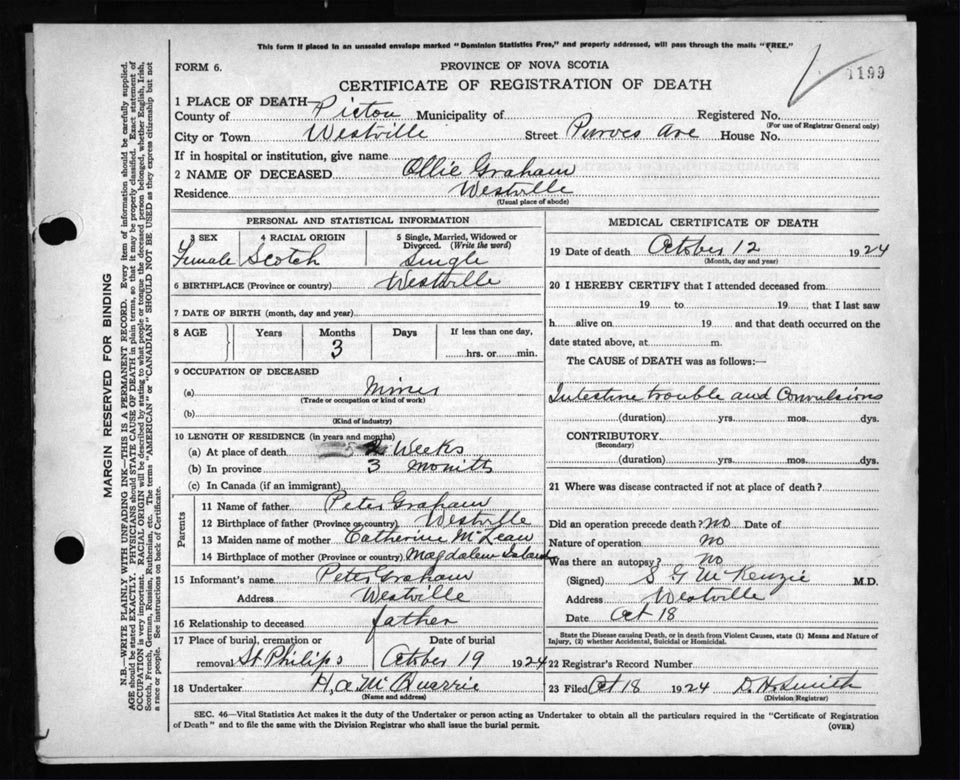 This form if placed in an unsealed envelope marked "Dominion Statistics Free," and properly addressed, will pass through the mails "FREE."
FORM 6.
PROVINCE OF NOVA SCOTIA
CERTIFICATE OF REGISTRATION OF DEATH
1199
1 PLACE OF DEATH
County of Pictou Municipality of Registered No.
(For use of Registrar General only)
City or Town Westville Street Purves Ave House No.
If in hospital or institution, give name
2 NAME OF DECEASED Ollie Graham
Residence Westville
(Usual place of abode)
PERSONAL AND STATISTICAL INFORMATION
3 SEX 4 RACIAL ORIGIN 5 Single, Married, Widowed or Divorced. (Write the word)
Female Scotch Single
6 BIRTHPLACE (Province or country) Westville
7 DATE OF BIRTH (month, day and year)
8 AGE Years Months Days If less than one day,
3 hrs. or min.
9 OCCUPATION OF DECEASED
(a) Miner
(Trade or occupation or kind of work)
(b)
(Kind of industry)
10 LENGTH OF RESIDENCE (in years and months)
(a) At place of death 2 Weeks
(b) In province 3 Monitts
(c) In Canada (if an immigrant)
Parents
11 Name of father Peter Graham
12 Birthplace of father (Province or country) Westville
13 Maiden name of mother Catherine McLean
14 Birthplace of mother (Province or country) Magdalen Island
15 Informant's name Peter Graham
Address Westville
16 Relationship to deceased father
17 Place of burial, cremation or removal St Philips
Date of burial October 19 1924
18 Undertaker H. a McQuarrie
(Name and address)
MEDICAL CERTIFICATE OF DEATH
19 Date of death October 12 1924
(Month, day and year)
20 I HEREBY CERTIFY that I attended deceased from
19 to 19 that I last saw
h alive on 19 and that death occurred on the
date stated above, at m.
The CAUSE OF DEATH was as follows:—
Intestine trouble and Convulsions
(duration) yrs. mos. dys.
CONTRIBUTORY
(Secondary)
(duration) yrs. mos. dys.
21 Where was disease contracted if not at place of death?
Did an operation precede death? No Date of
Nature of operation No
Was there an autopsy? No
(Signed) S G McKenzie M.D.
Address Westville
Date Oct 18
State the Disease causing Death, or in death from Violent Causes, state (1) Means and Nature of
Injury, (2) whether Accidental, Suicidal or Homicidal.
22 Registrar's Record Number
23 Filed Oct 18 1924 D. H. Smith
(Division Registrar)
SEC. 46—Vital Statistics Act makes it the duty of the Undertaker or person acting as Undertaker to obtain all the particulars required in the "Certificate of Registration
of Death" and to file the same with the Division Registrar who shall issue the burial permit.
(OVER)
MARGIN RESERVED FOR BINDING
N.B.—WRITE PLAINLY WITH UNFADING INK—THIS IS A PERMANENT RECORD. Every item of information should be carefully supplied.
AGE should be stated EXACTLY. PHYSICIANS should STATE CAUSE OF DEATH in plain terms, so that it may be properly classified. Exact statement of
OCCUPATION is very important. RACIAL ORIGIN will be described by stating to what people or tongue the deceased person belonged, whether English, Irish,
Scotch, French, German, Russian, Ruthenian, etc. The terms "AMERICAN" or "CANADIAN" SHOULD NOT BE USED as they express citizenship but not
a race or people. See instructions on back of Certificate.